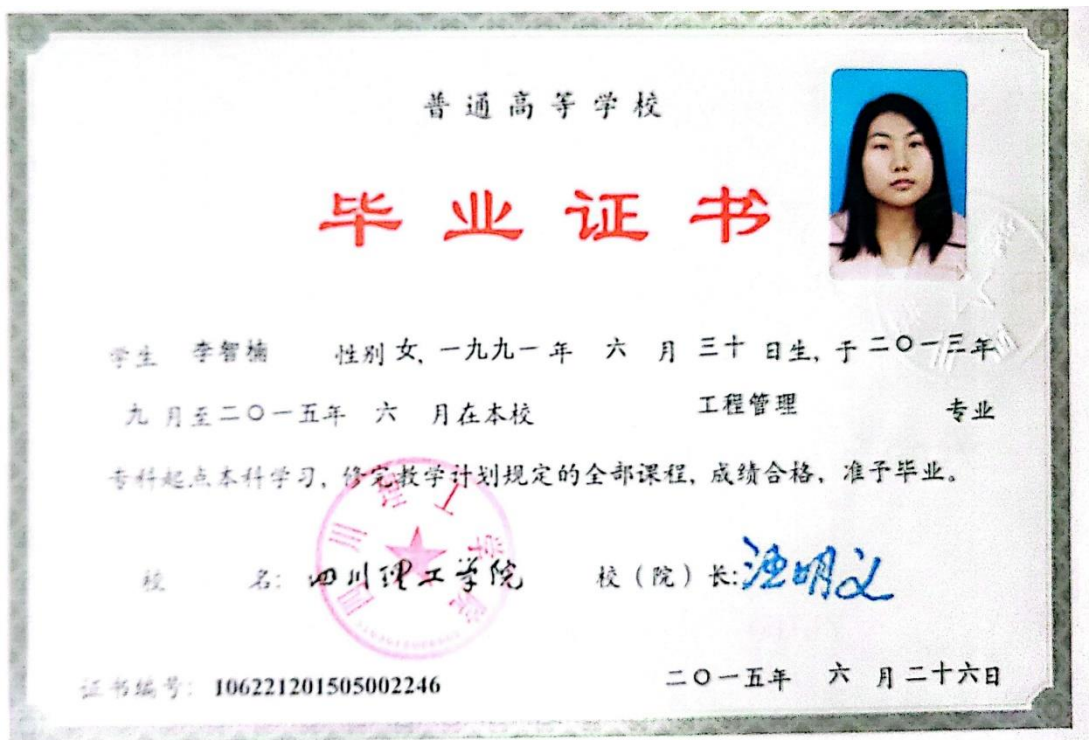 普通高等学校
毕业证书
学生 李智楠 性别 女, 一九九一 年 六 月 三十 日生, 于 二〇一三年
九 月至二〇一五年 六 月在本校 工程管理 专业
专科起点本科学习, 修完教学计划规定的全部课程, 成绩合格, 准予毕业。
校 名: 四川理工学院 校（院）长:
四川理工学院
证书编号: 106221201505002246 二〇一五年 六 月二十六日